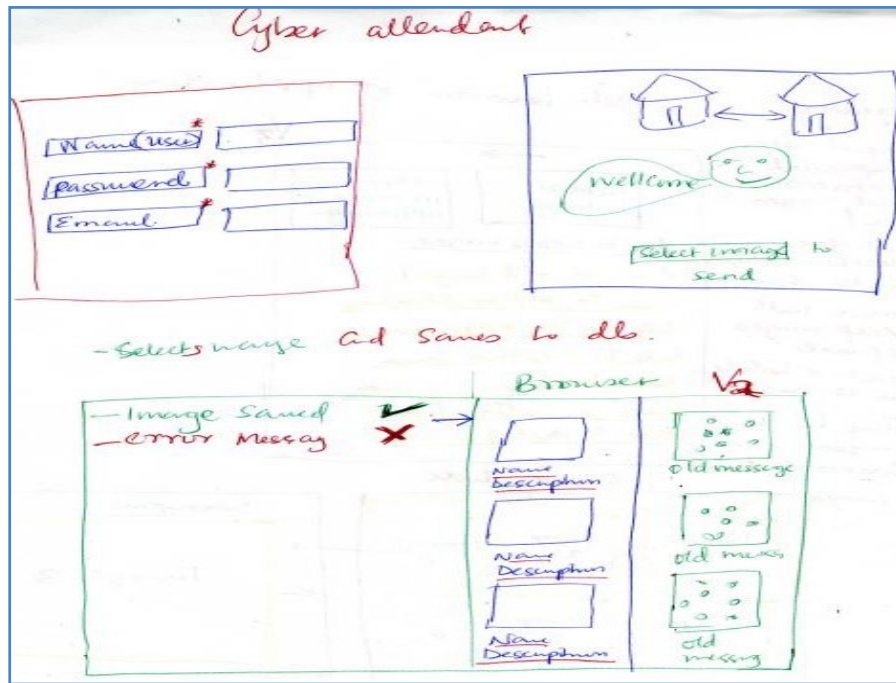 Cyber attendant
Name(user)*
password*
Email*
Wellcome
Select image to
send
- Selects image and saves to db.
Browser V2
- Image saved ✓
- error Messag ✗
Name
Description
old message
Name
Description
old
Name
Description
old
messag